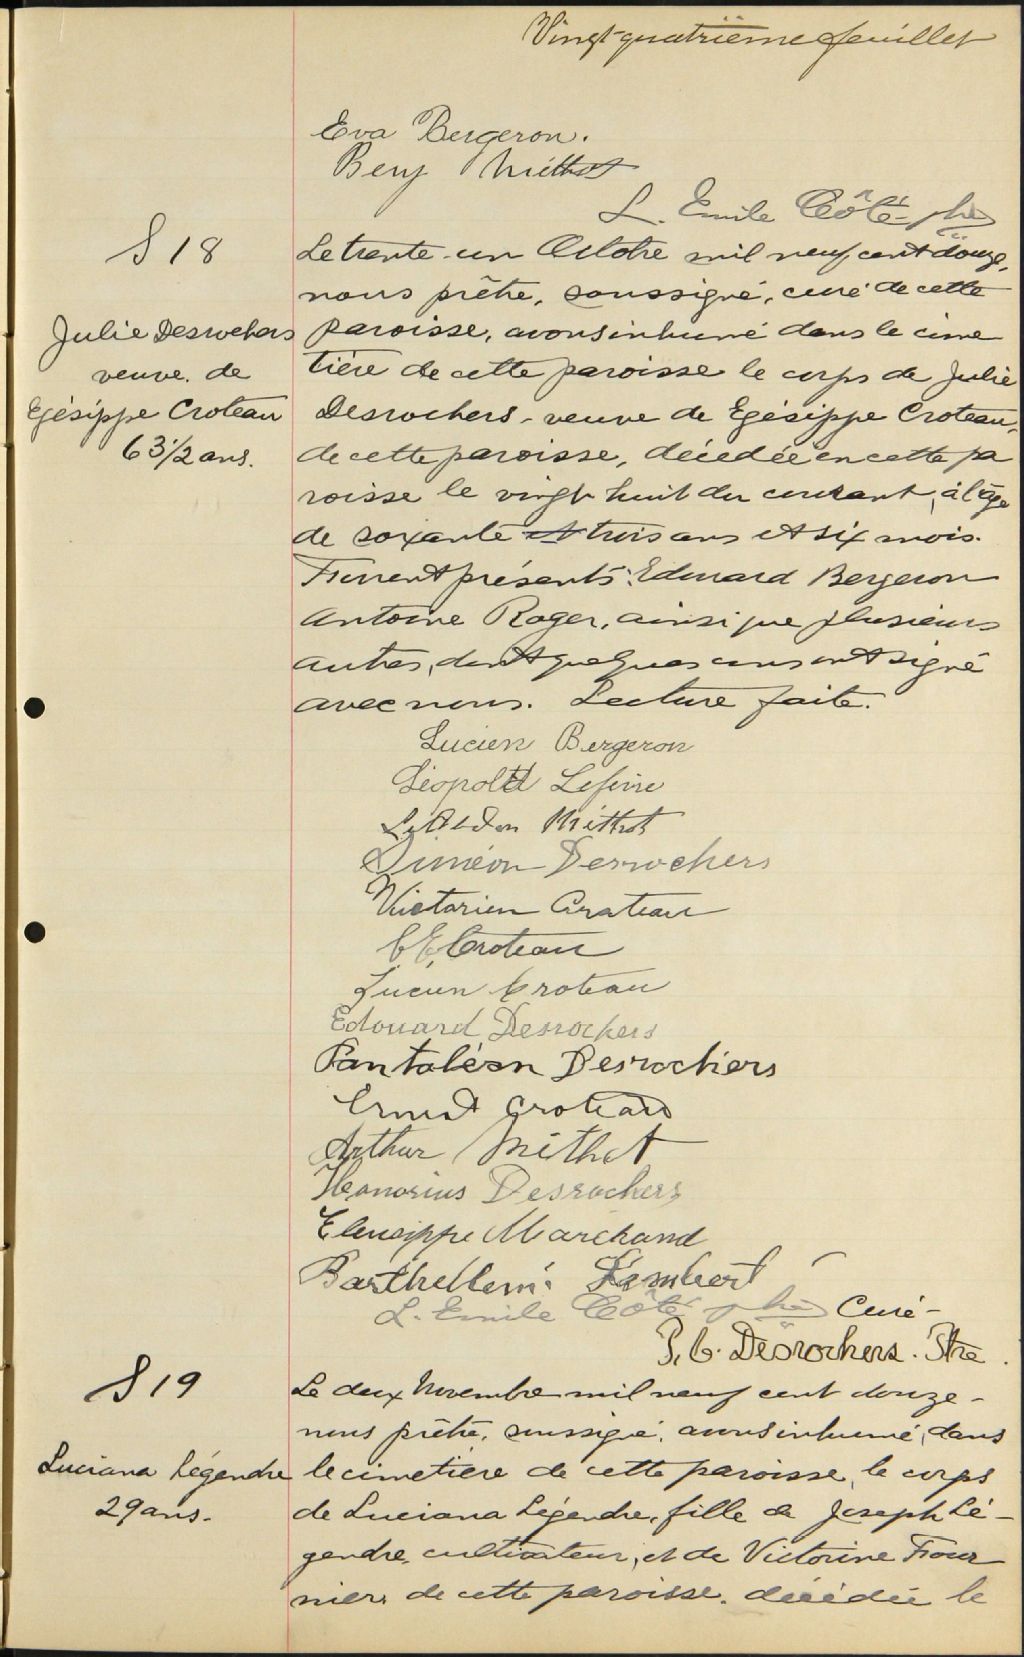 Vingt-quatrième feuillet
Eva Bergeron.
Benj Méthot
L. Emile Côté ptre
S 18
Julie Desrochers
veuve de
Egésippe Croteau
63 1/2 ans.
Le trente-un Octobre mil neuf cent douze,
nous prêtre, soussigné, curé de cette
paroisse, avons inhumé dans le cime
tière de cette paroisse le corps de Julie
Desrochers, veuve de Egésippe Croteau,
de cette paroisse, décédée en cette pa
roisse le vingt huit du courant, à l'âge
de soixante et trois ans et six mois.
Furent présents: Edouard Bergeron
Antoine Roger, ainsi que plusieurs
autres, dont quelques uns ont signé
avec nous. Lecture faite.
Lucien Bergeron
Léopold
Méthot
Siméon Desrochers
Victorien Croteau
C E. Croteau
Lucien Croteau
Edouard Desrochers
Pantaléon Desrochers
Ernest Croteau
Arthur Méthot
Honorius Desrochers
Eleusippe Marchand
Barthellemi Lambert
L. Emile Côté ptre Curé-
P. C. Desrochers. Ptre.
S 19
Luciana Légendre
29 ans.
Le deux Novembre mil neuf cent douze-
nous prêtre, soussigné, avons inhumé, dans
le cimetière de cette paroisse, le corps
de Luciana Légendre, fille de Joseph Lé-
gendre, cultivateur, et de Victorine Four
nier, de cette paroisse. décédée le